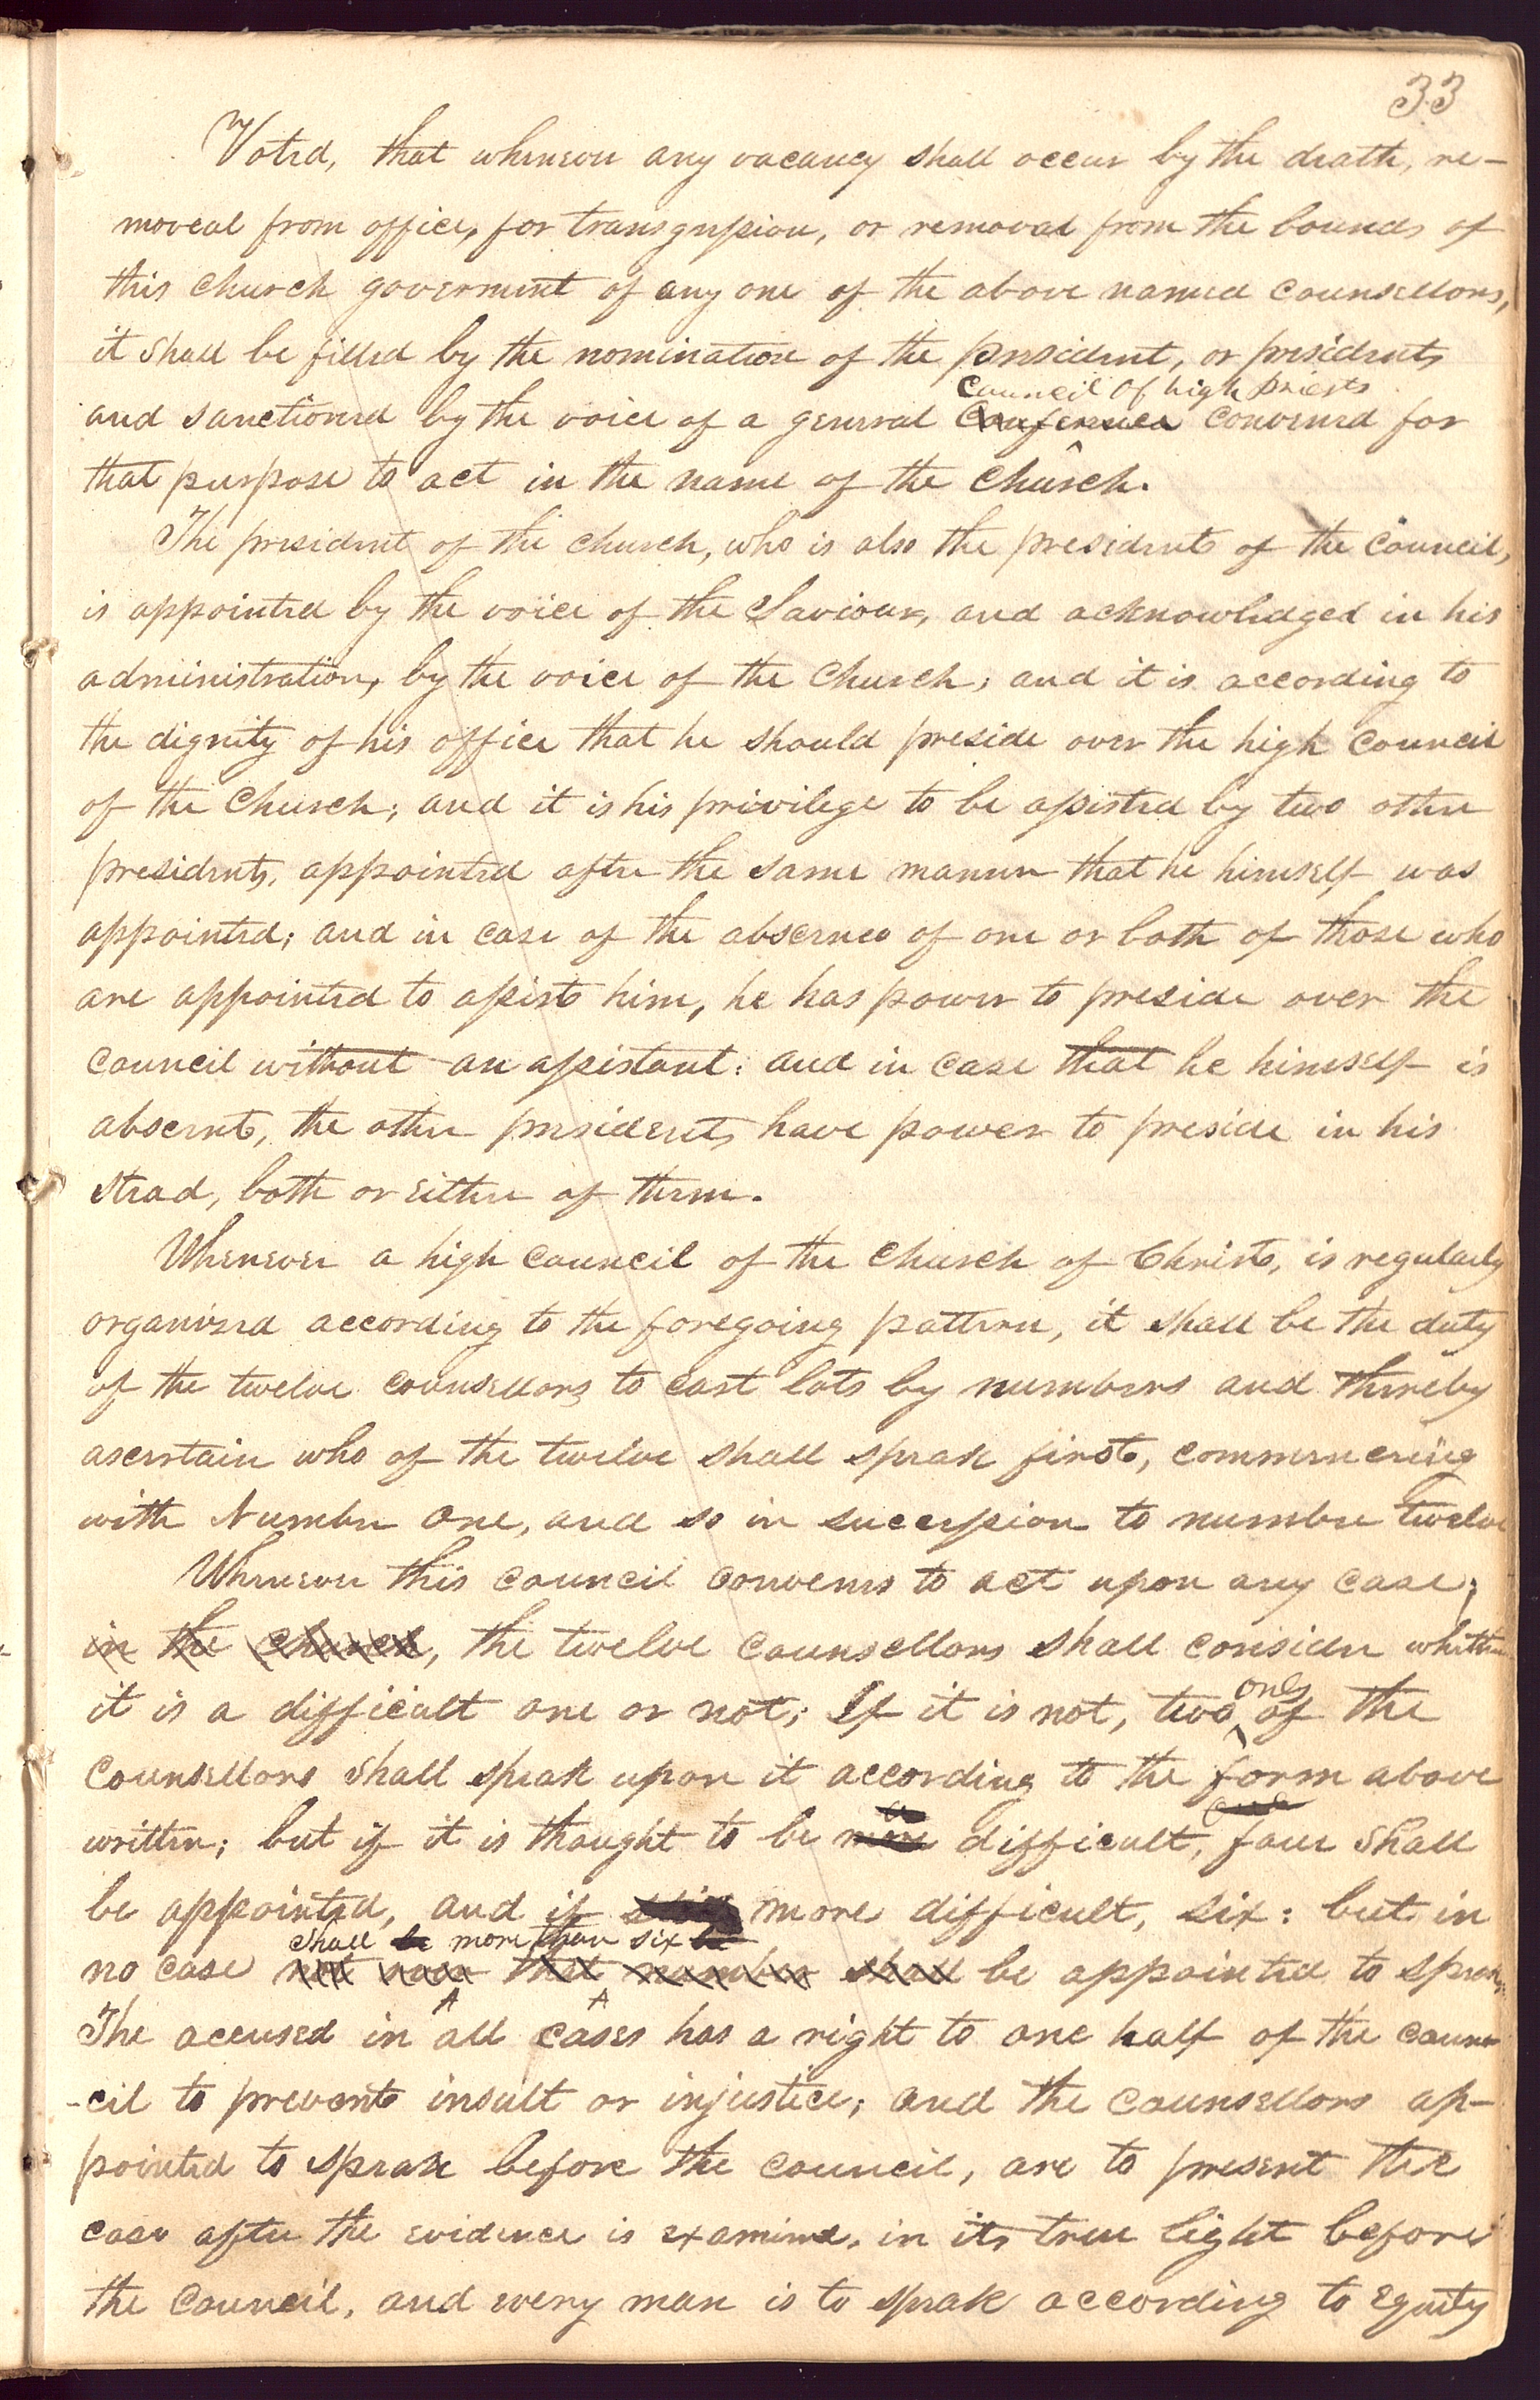 33
Voted, that whenever any vacancy shall occur by the death, re-
moveal from office, for transgression, or removal from the bounds of
this church goverment of any one of the above named counsellors,
it shall be filled by the nomination of the president, or presidents
council of high priests
and sanctioned by the voice of a general Conference convened for
that purpose to act in the name of the church.
The president of the church, who is also the president of the council,
is appointed by the voice of the Saviour, and acknowledged in his
administration, by the voice of the church; and it is according to
the dignity of his office that he should preside over the high council
of the church; and it is his privilege to be assisted by two other
presidents, appointed after the same manner that he himself was
appointed; and in case of the absence of one or both of those who
are appointed to assist him, he has power to preside over the
council without an assistant: and in case that he himself is
absent, the other presidents have power to preside in his
stead, both or either of them.
Whenever a high council of the church of Christ, is regularly
organized according to the foregoing pattern, it shall be the duty
of the twelve counsellors to cast lots by numbers and thereby
ascertain who of the twelve shall speak first, commencing
with Number one, and so in succession to number twelve
Whenever this council convenes to act upon any case;
in the church, the twelve counsellors shall consider whether
it is a difficult one or not; If it is not, two only of the
counsellors shall speak upon it according to the form above
written; but if it is thought to be more difficult, four shall
be appointed, and if more difficult, six: but in
shall be more than six be
no case not that number shall be appointed to speak.
The accused in all cases has a right to one half of the coun
-cil to prevent insult or injustice; and the counsellors ap-
pointed to speak before the council, are to present the
case after the evidence is examined, in its true light before
the council, and every man is to speak according to equity